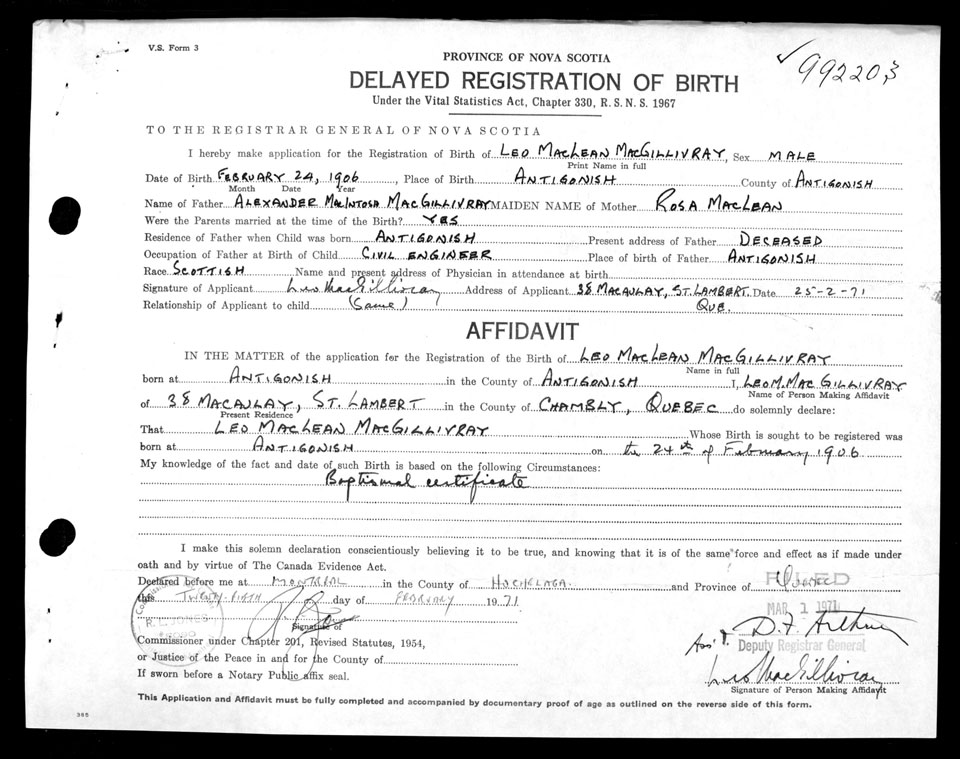 V.S. Form 3
PROVINCE OF NOVA SCOTIA
992203
DELAYED REGISTRATION OF BIRTH
Under the Vital Statistics Act, Chapter 330, R.S.N.S. 1967
TO THE REGISTRAR GENERAL OF NOVA SCOTIA
I hereby make application for the Registration of Birth of LEO MACLEAN MACGILLIVRAY, Sex MALE
Print Name in full
Date of Birth FEBRUARY 24, 1906, Place of Birth ANTIGONISH County of ANTIGONISH
Month Date Year
Name of Father ALEXANDER MACINTOSH MACGILLIVRAY MAIDEN NAME of Mother ROSA MACLEAN
Were the Parents married at the time of the Birth? YES
Residence of Father when Child was born ANTIGONISH Present address of Father DECEASED
Occupation of Father at Birth of Child CIVIL ENGINEER Place of birth of Father ANTIGONISH
Race SCOTTISH Name and present address of Physician in attendance at birth
Signature of Applicant Leo MacGillivray Address of Applicant 38 MACAULAY, ST. LAMBERT. Date 25-2-71
Relationship of Applicant to child (Same) QUE.
AFFIDAVIT
IN THE MATTER of the application for the Registration of the Birth of LEO MACLEAN MACGILLIVRAY
Name in full
born at ANTIGONISH in the County of ANTIGONISH I, LEO M. MACGILLIVRAY
Name of Person Making Affidavit
of 38 MACAULAY, ST. LAMBERT in the County of CHAMBLY, QUEBEC do solemnly declare:
Present Residence
That LEO MACLEAN MACGILLIVRAY Whose Birth is sought to be registered was
born at ANTIGONISH on the 24th of February 1906.
My knowledge of the fact and date of such Birth is based on the following Circumstances:
Baptismal certificate
I make this solemn declaration conscientiously believing it to be true, and knowing that it is of the same force and effect as if made under
oath and by virtue of The Canada Evidence Act.
Declared before me at MONTREAL in the County of HOCHELAGA and Province of Quebec
FILED
this TWENTY-FIFTH day of FEBRUARY 1971
MAR 1 1971
R. L. JONES
Signature of
Ass't. D. F. Arthur
Commissioner under Chapter 201, Revised Statutes, 1954,
Deputy Registrar General
or Justice of the Peace in and for the County of
Leo MacGillivray
If sworn before a Notary Public affix seal.
Signature of Person Making Affidavit
This Application and Affidavit must be fully completed and accompanied by documentary proof of age as outlined on the reverse side of this form.
385